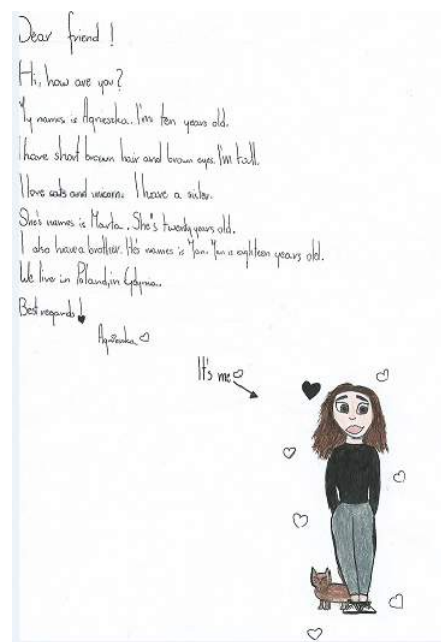 Dear friend!
Hi, how are you?
My names is Agnieszka. I'm ten years old.
I have short brown hair and brown eyes. I'm tall.
I love cats and unicorn. I have a sister.
She's names is Marta. She's twenty years old.
I also have a brother. He's names is Jan. Jan is eighteen years old.
We live in Poland, in Gdynia.
Best regards!
Agnieszka
It's me